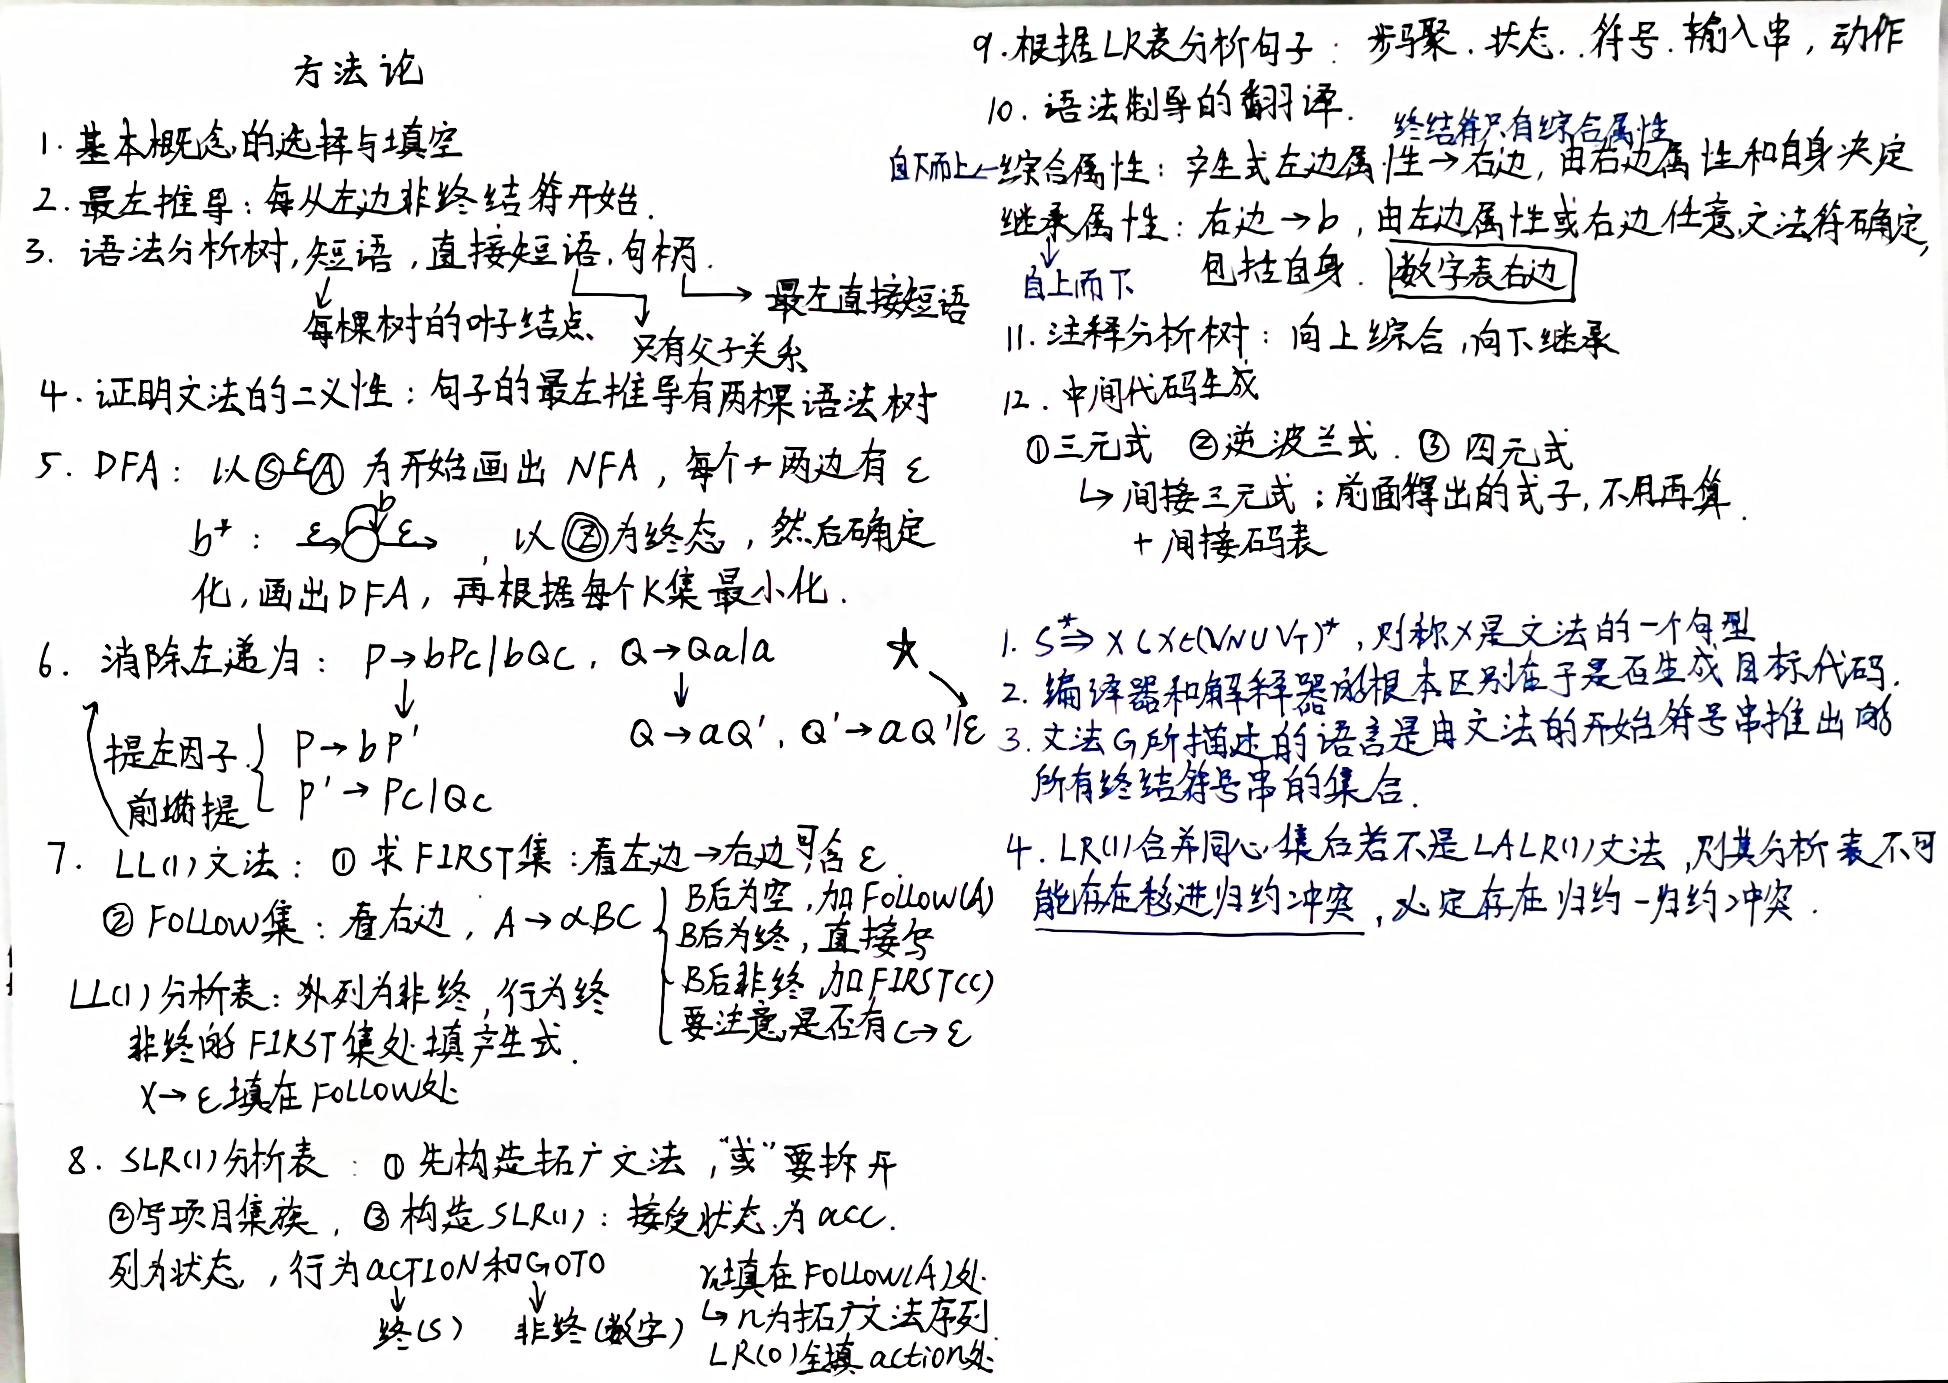 方法论
1. 基本概念的选择与填空
2. 最左推导：每从左边非终结符开始.
3. 语法分析树, 短语, 直接短语, 句柄.
每棵树的叶子结点
只有父子关系
最左直接短语
4. 证明文法的二义性：句子的最左推导有两棵语法树
5. DFA：以 S ε A 为开始画出 NFA, 每个+两边有 ε
b
b*： ε ε , 以 Z 为终态, 然后确定
化, 画出DFA, 再根据每个K集最小化.
6. 消除左递归：P→bPc|bQc, Q→Qa|a ★
↓ ↓
提左因子 P→bP' Q→aQ', Q'→aQ'|ε
前端提 P'→Pc|Qc
7. LL(1)文法：① 求FIRST集：看左边→右边, 可含 ε
② FOLLOW集：看右边, A→αBC
B后为空, 加FOLLOW(A)
B后为终, 直接写
B后非终, 加FIRST(C)
要注意是否有C→ε
LL(1)分析表：外列为非终, 行为终
非终的FIRST集处填产生式.
X→ε填在FOLLOW处
8. SLR(1)分析表：① 先构造拓广文法, "或"要拆开
②写项目集族, ③构造SLR(1)：接受状态为acc.
列为状态, 行为ACTION和GOTO
终(S) 非终(数字)
rn填在FOLLOW(A)处
↳ n为拓广文法序列
LR(0)全填action处
9. 根据LR表分析句子：步骤. 状态. 符号. 输入串, 动作
10. 语法制导的翻译.
终结符只有综合属性
自下而上←综合属性：产生式左边属性→右边, 由右边属性和自身决定
继承属性：右边→b, 由左边属性或右边任意文法符确定,
自上而下 包括自身. 数字表右边
11. 注释分析树：向上综合, 向下继承
12. 中间代码生成
①三元式 ②逆波兰式. ③四元式
↳ 间接三元式；前面得出的式子, 不用再算.
+ 间接码表
1. S*⇒X (X∈(VN∪VT)*, 则称X是文法的一个句型
2. 编译器和解释器的根本区别在于是否生成目标代码.
3. 文法G所描述的语言是由文法的开始符号串推出的
所有终结符号串的集合.
4. LR(1)合并同心集后若不是LALR(1)文法, 则其分析表不可
能存在移进归约冲突, 必定存在归约-归约冲突.